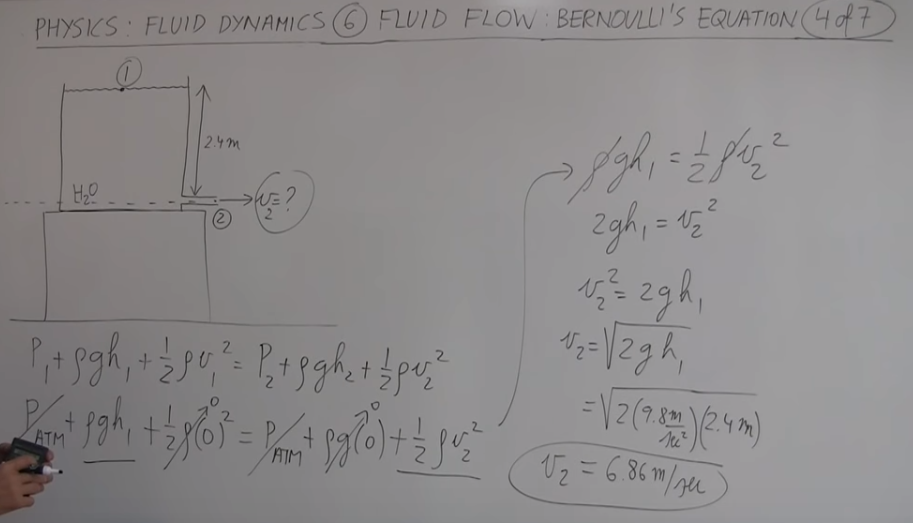 PHYSICS: FLUID DYNAMICS ⑥ FLUID FLOW: BERNOULLI'S EQUATION 4 of 7
①
2.4 m
H₂O
v₂=?
②
P₁ + ρgh₁ + ½ρv₁² = P₂ + ρgh₂ + ½ρv₂²
P_ATM + ρgh₁ + ½ρ(0)² = P_ATM + ρg(0) + ½ρv₂²
0
0
ρgh₁ = ½ρv₂²
2gh₁ = v₂²
v₂² = 2gh₁
v₂ = √2gh₁
= √2(9.8 m/s²)(2.4 m)
v₂ = 6.86 m/sec